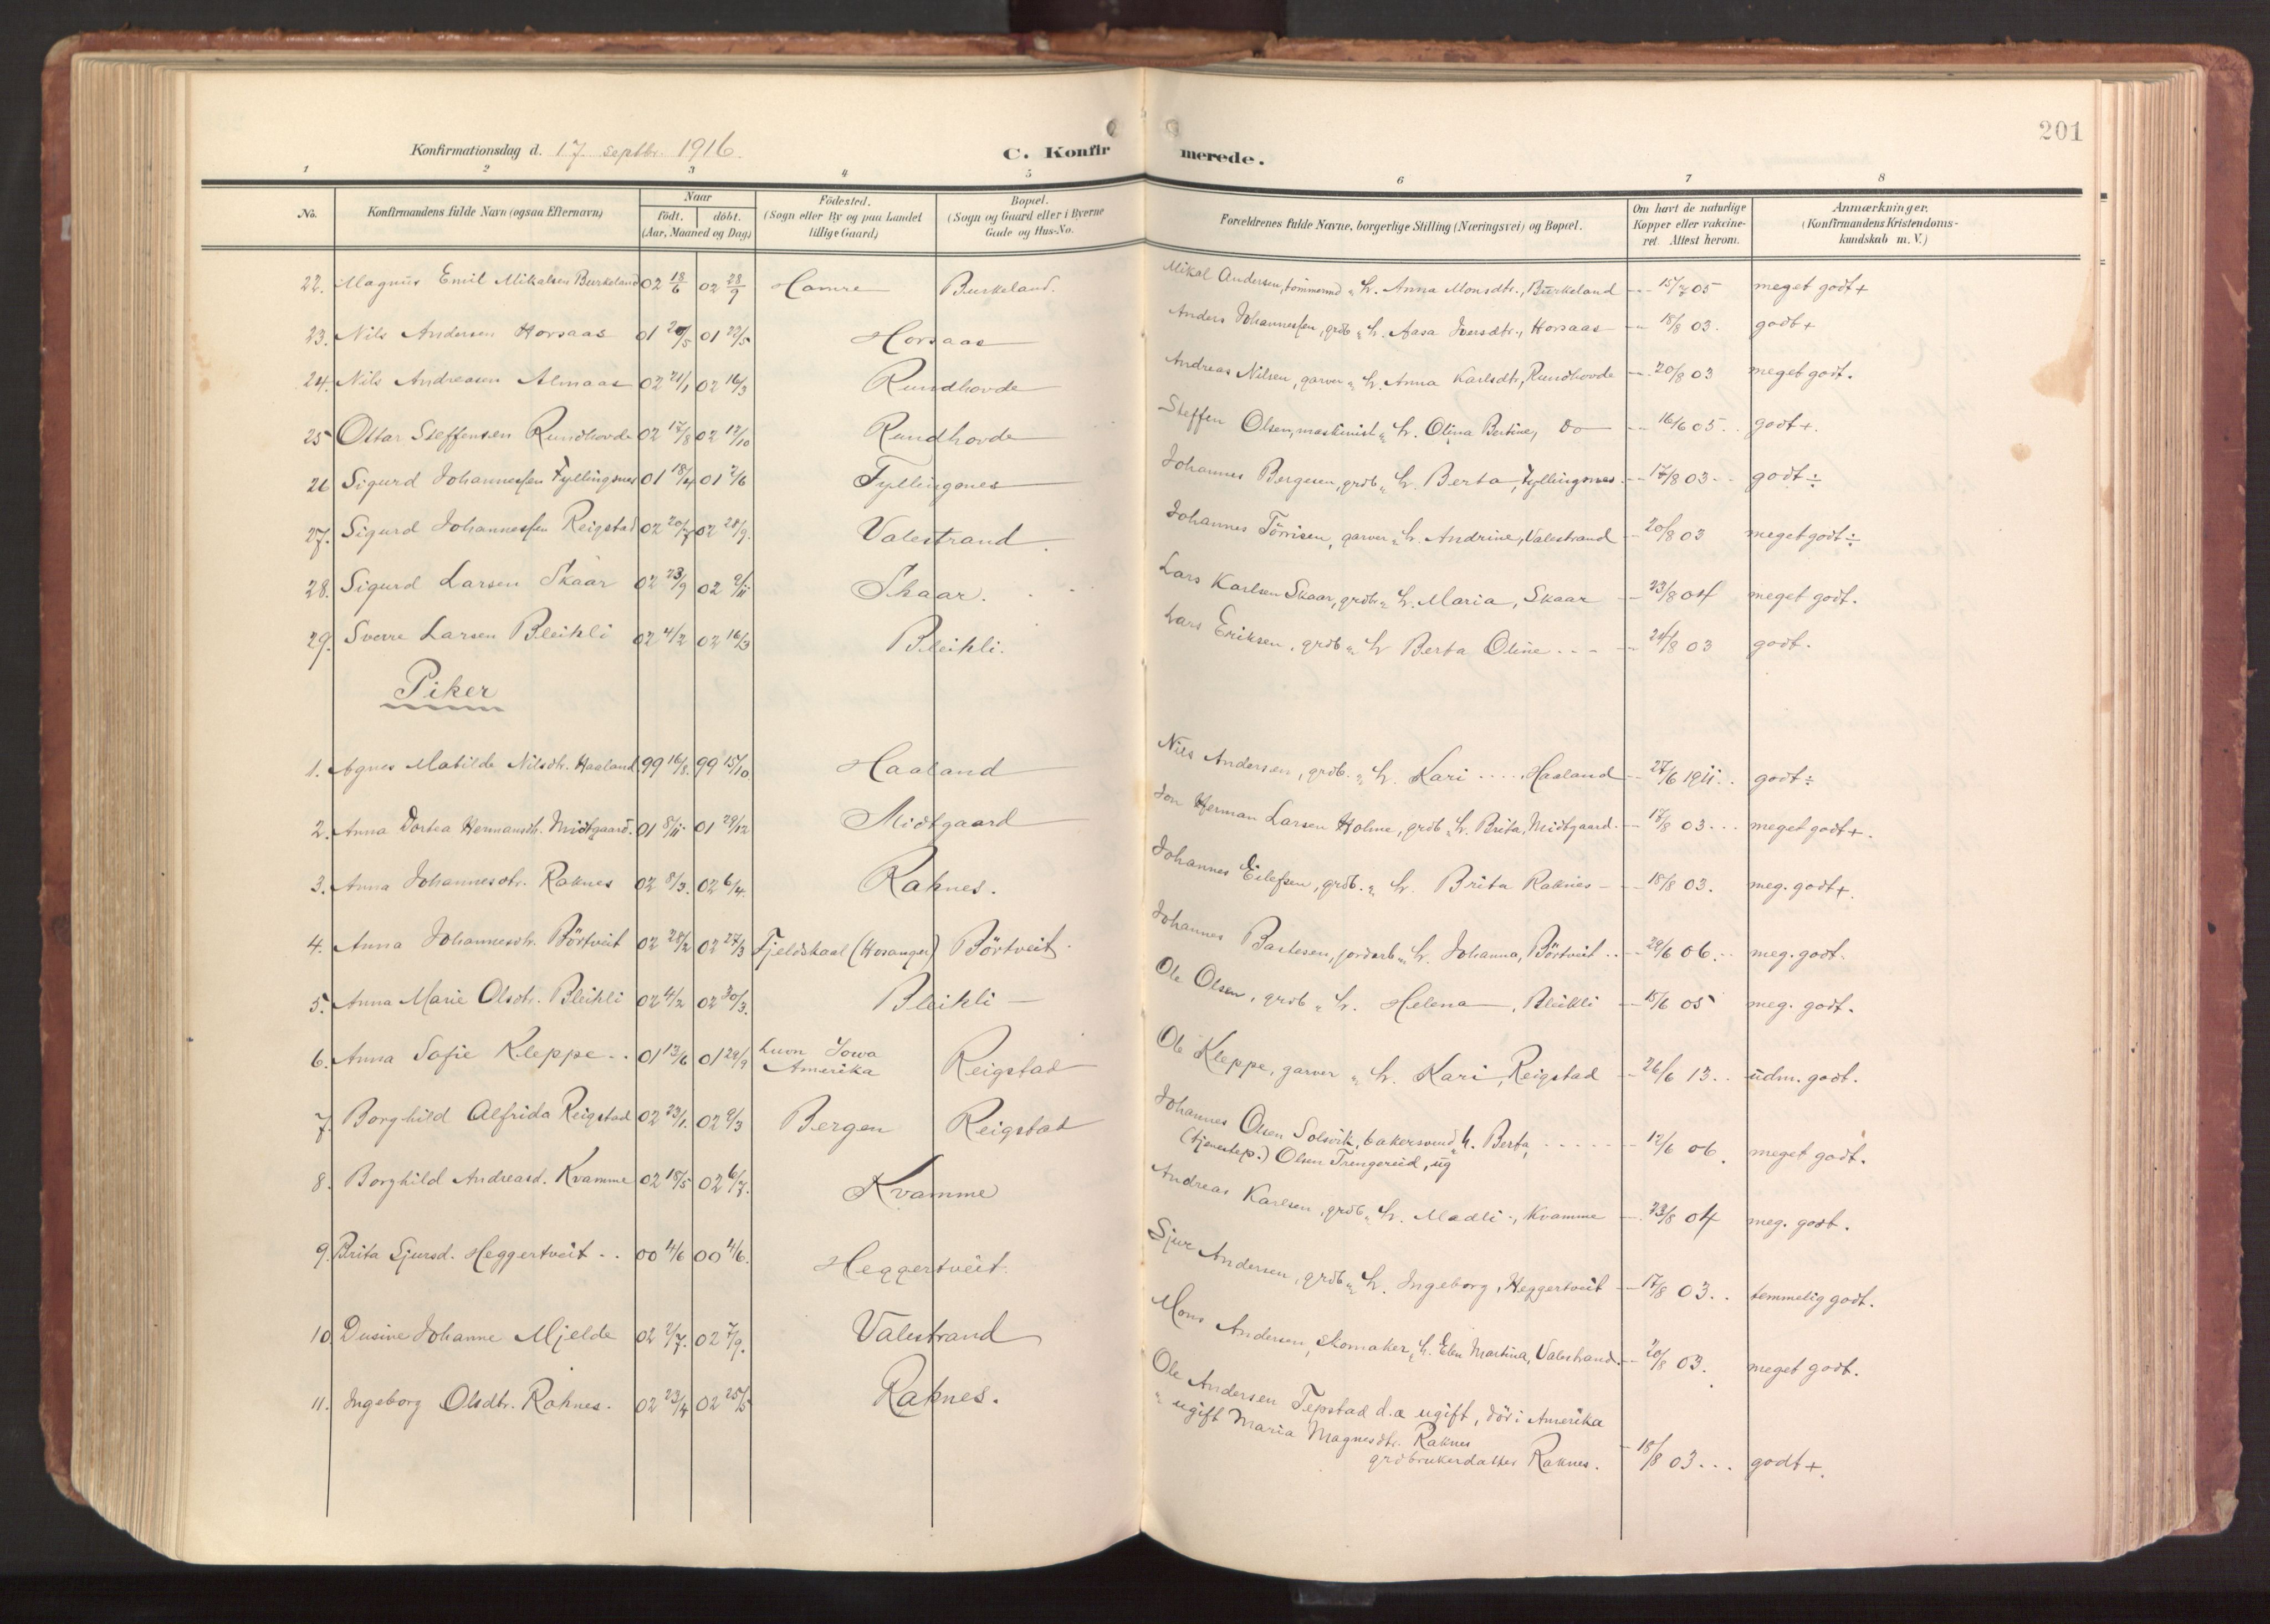 201
Konfirmationsdag d. 17. septbr. 1916.
C. Konfirmerede.
1 2 3 4 5 6 7 8
No. Konfirmandens fulde Navn (ogsaa Efternavn) Naar födt. döbt. (Aar, Maaned og Dag) Födested. (Sogn eller By og paa Landet tillige Gaard) Bopæl. (Sogn og Gaard eller i Byerne Gade og Hus-No. Forældrenes fulde Navne, borgerlige Stilling (Næringsvei) og Bopæl. Om havt de naturlige Kopper eller vakcineret. Attest herom. Anmærkninger. (Konfirmandens Kristendomskundskab m. V.)
22. Magnus Emil Mikalsen Burkeland 02 18/6 02 28/9 Hamre Burkeland. Mikal Andersen, tömmermd " h. Anna Monsdtr., Burkeland 15/7 05 meget godt +
23. Nils Andersen Horsaas 01 20/5 01 22/5 Horsaas Anders Johannessen, grdb " h. Aasa Iversdtr., Horsaas 18/8 03. godt +
24. Nils Andreasen Almaas 02 21/1 02 16/3 Rundhovde Andreas Nilsen, garver " h. Anna Karlsdtr, Rundhovde 20/8 03 meget godt.
25 Ottar Steffensen Rundhovde 02 17/8 02 12/10 Rundhovde Steffen Olsen, maskinist " h. Olina Bertine, Do 16/6 05.. godt +.
26 Sigurd Johannessen Fyllingsnes 01 18/4 01 2/6 Fyllingsnes Johannes Bergesen, grdb " h. Berta, Fyllingsnes. 17/8 03.. godt ÷
27. Sigurd Johannessen Reigstad 02 20/7 02 28/9. Valestrand. Johannes Törrisen, garver " h. Andrine, Valestrand 20/8 03 meget godt ÷
28. Sigurd Larsen Skaar 02 23/9 02 9/11 Skaar. Lars Karlsen Skaar, grdbr " h. Maria, Skaar 23/8 04 meget godt.
29. Sverre Larsen Bleikli 02 4/2 02 16/3 Bleikli. Lars Eriksen, grdb " h Berta Oline ... 24/8 03 godt.
Piker
1. Agnes Matilde Nilsdtr. Haaland 99 16/8. 99 15/10 Haaland Nils Andersen, grdb. " h. Kari .... Haaland 27/6 1911.. godt ÷
2. Anna Dortea Hermansdtr. Midtgaard. 01 8/11 01 29/12 Midtgaard Jon Herman Larsen Holme, grdb " h. Brita, Midtgaard. 17/8 03... meget godt +.
3. Anna Johannesdtr. Raknes 02 8/3. 02 6/4. Raknes. Johannes Eilefsen, grdb. " h. Brita Raknes 18/8 03. meg. godt +.
4. Anna Johannesdtr. Börtveit 02 28/2 02 27/3 Fjeldskaal (Hosanger) Börtveit. Johannes Bartesen, jordarb " h. Johanna, Börtveit .. 29/6 06... meg. godt.
5. Anna Marie Olsdtr. Bleikli 02 4/2 02 30/3. Bleikli Ole Olsen, grdb " h. Helena, Bleikli 15/6 05 meg. godt.
6. Anna Sofie Kleppe.. 01 13/6 01 29/9 Iowa Amerika Reigstad Ole Kleppe, garver " h. Kari, Reigstad 26/6 13.. udm. godt.
7. Borghild Alfrida Reigstad 02 23/1. 02 9/3 Bergen Reigstad Johannes Olsen Solvik, bakersvend " h. Berta, (tjenestep.) Olsen Trengereid, ug 12/6 06. meget godt.
8. Borghild Andreasd. Kvamme 02 15/5 02 6/7. Kvamme Andreas Karlsen, grdb " h. Madli, Kvamme 23/8 04 meg. godt.
9. Brita Sjursd. Heggertveit .. 00 4/6 00 4/6. Heggertveit. Sjur Andersen, grdb " h. Ingeborg, Heggertveit 17/8 03.. temmelig godt.
10. Dusine Johanne Mjelde 02 2/7. 02 7/9. Valestrand Mons Andersen, skomaker, " h. Elen Martina, Valestrand. 20/8 03. meget godt.
11. Ingeborg Olsdtr. Raknes. 02 23/4 02 25/5 Raknes. Ole Andersen Tepstad d.a ugift, dör i Amerika
" ugift Maria Magnesdtr. Raknes
grdbrukerdatter Raknes. 18/8 03... godt +.